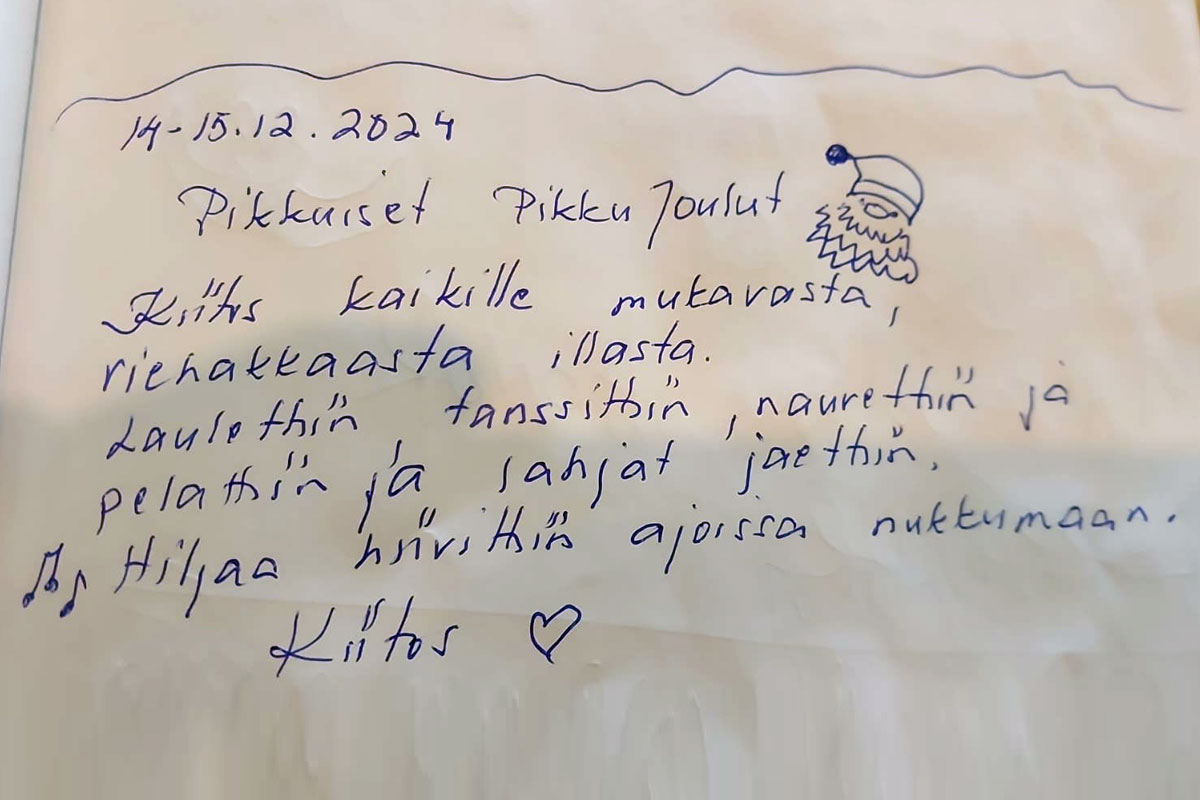 14-15.12.2024
Pikkuiset PikkuJoulut
Kiitos kaikille mukavasta,
riehakkaasta illasta.
Laulettiin, tanssittiin, naurettiin ja
pelattiin ja lahjat jaettiin.
Hiljaa hiivittiin ajoissa nukkumaan.
Kiitos ♡